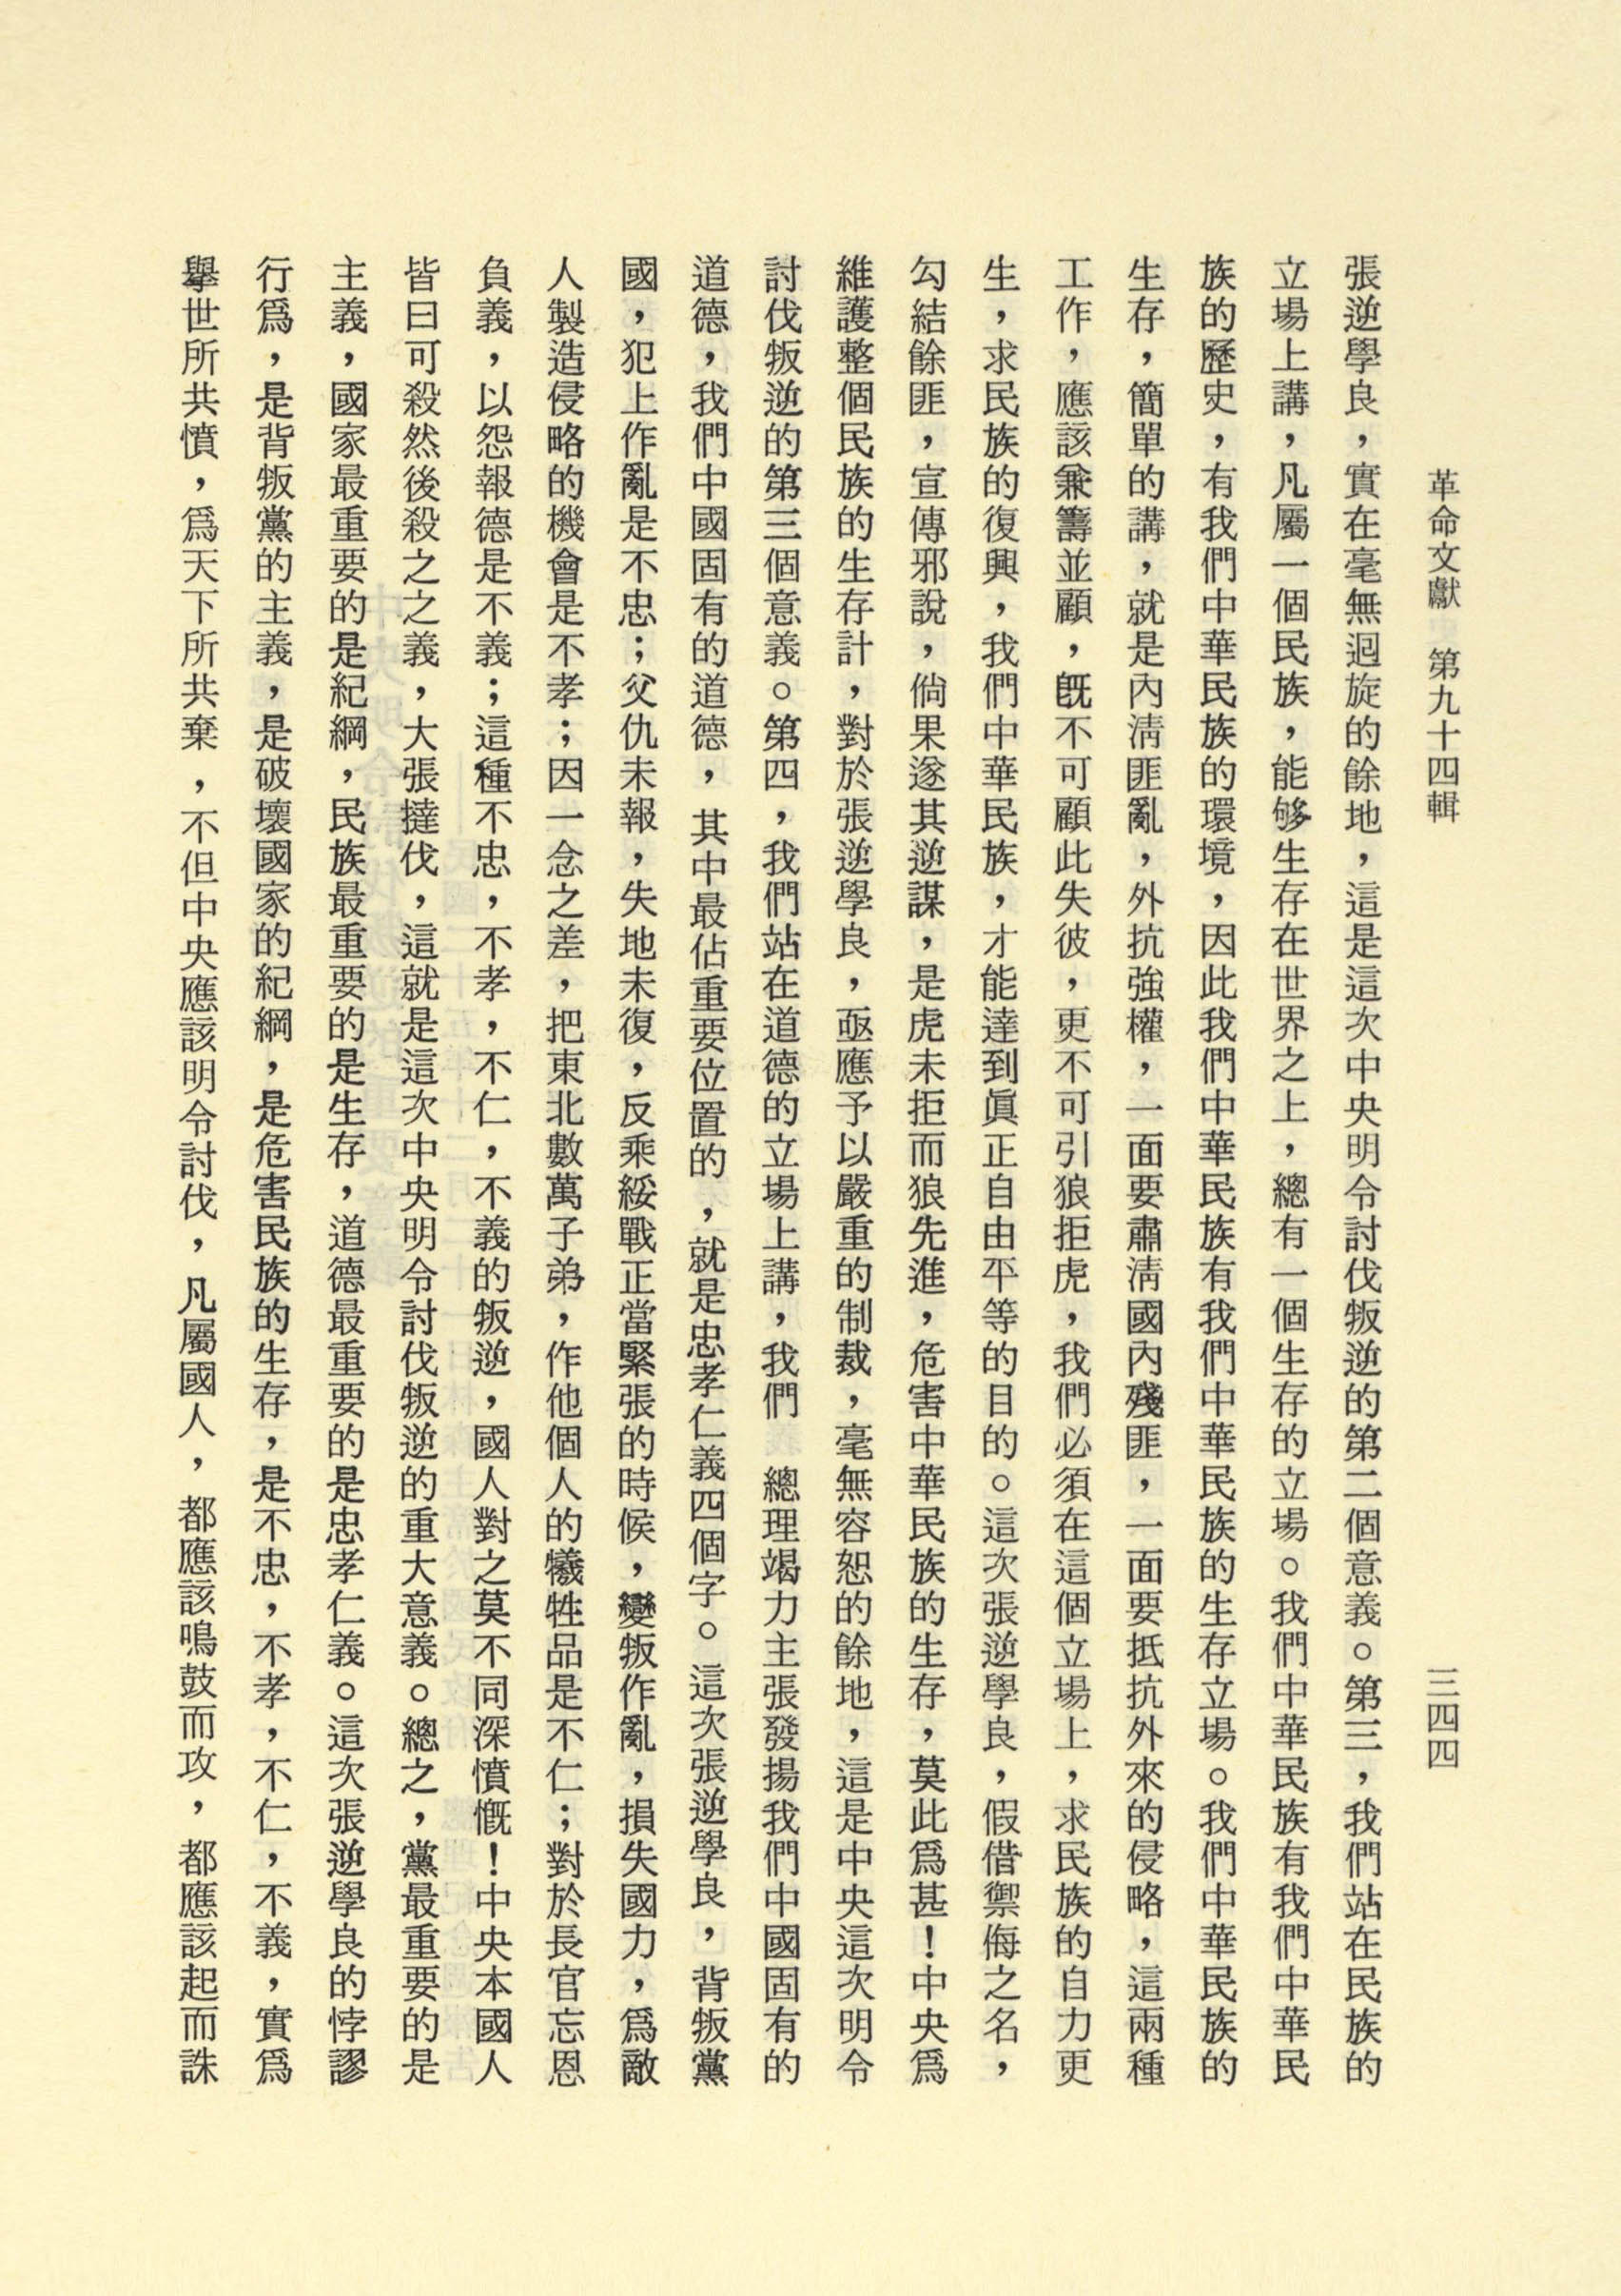 革命文獻　第九十四輯　三四四
張逆學良，實在毫無迴旋的餘地，這是這次中央明令討伐叛逆的第二個意義。第三，我們站在民族的
立場上講，凡屬一個民族，能够生存在世界之上，總有一個生存的立場。我們中華民族有我們中華民
族的歷史，有我們中華民族的環境，因此我們中華民族有我們中華民族的生存立場。我們中華民族的
生存，簡單的講，就是內淸匪亂，外抗強權，一面要肅淸國內殘匪，一面要抵抗外來的侵略，這兩種
工作，應該兼籌並顧，旣不可顧此失彼，更不可引狼拒虎，我們必須在這個立場上，求民族的自力更
生，求民族的復興，我們中華民族，才能達到眞正自由平等的目的。這次張逆學良，假借禦侮之名，
勾結餘匪，宣傳邪說，倘果遂其逆謀，是虎未拒而狼先進，危害中華民族的生存，莫此爲甚！中央爲
維護整個民族的生存計，對於張逆學良，亟應予以嚴重的制裁，毫無容恕的餘地，這是中央這次明令
討伐叛逆的第三個意義。第四，我們站在道德的立場上講，我們　總理竭力主張發揚我們中國固有的
道德，我們中國固有的道德，其中最佔重要位置的，就是忠孝仁義四個字。這次張逆學良，背叛黨
國，犯上作亂是不忠；父仇未報，失地未復，反乘綏戰正當緊張的時候，變叛作亂，損失國力，爲敵
人製造侵略的機會是不孝；因一念之差，把東北數萬子弟，作他個人的犧牲品是不仁；對於長官忘恩
負義，以怨報德是不義；這種不忠，不孝，不仁，不義的叛逆，國人對之莫不同深憤慨！中央本國人
皆曰可殺然後殺之之義，大張撻伐，這就是這次中央明令討伐叛逆的重大意義。總之，黨最重要的是
主義，國家最重要的是紀綱，民族最重要的是生存，道德最重要的是忠孝仁義。這次張逆學良的悖謬
行爲，是背叛黨的主義，是破壞國家的紀綱，是危害民族的生存，是不忠，不孝，不仁，不義，實爲
擧世所共憤，爲天下所共棄，不但中央應該明令討伐，凡屬國人，都應該鳴鼓而攻，都應該起而誅